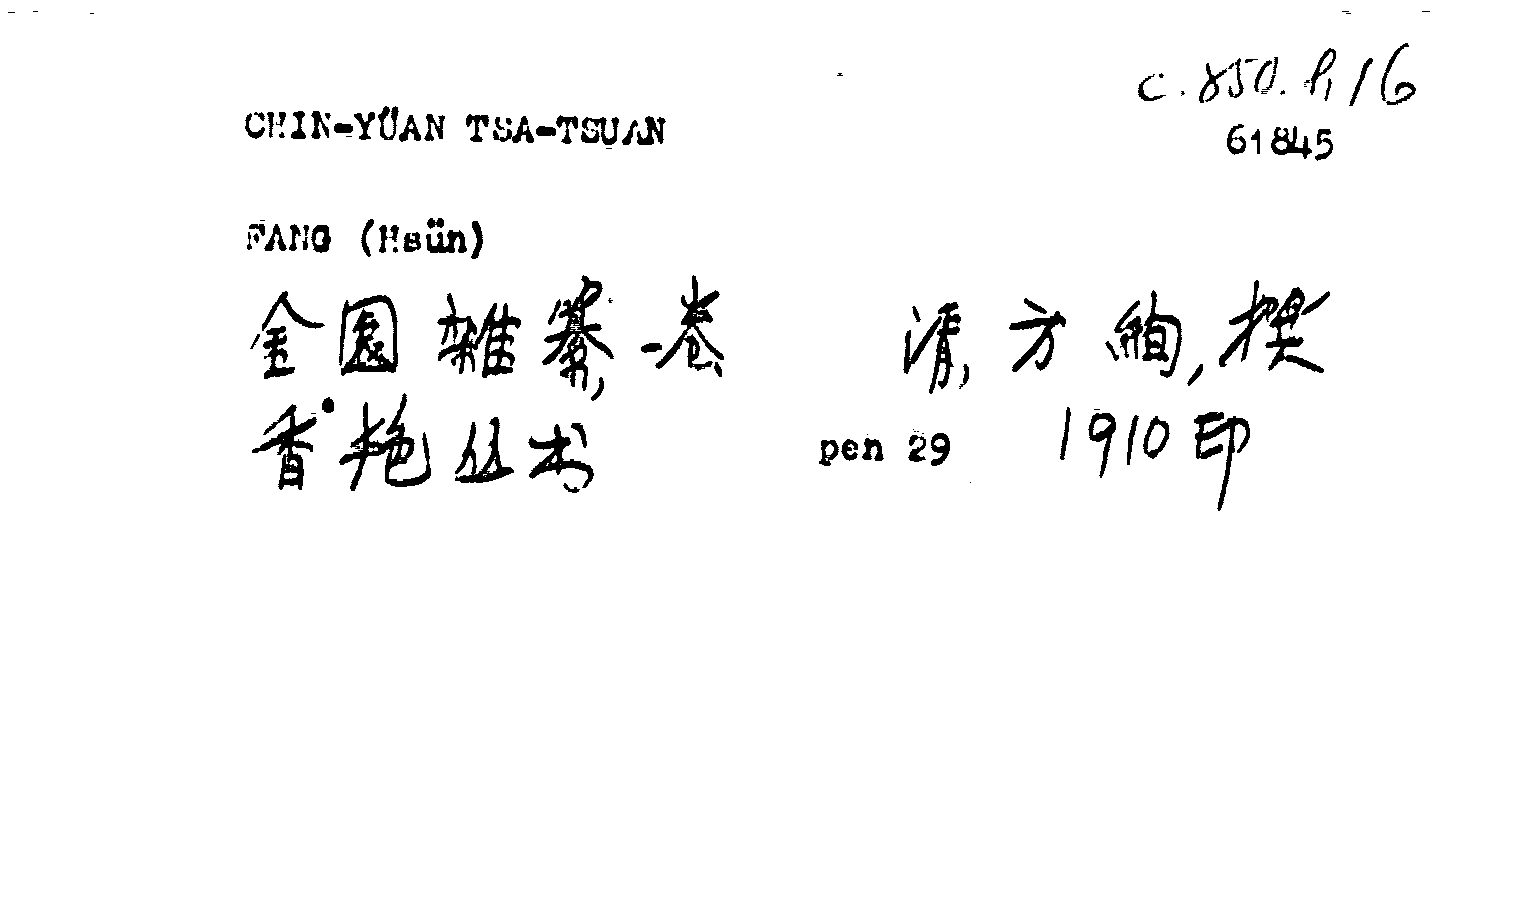 c. 850. h, 16
CHIN-YÜAN TSA-TSUAN
61845
FANG (Hsün)
金園雜纂, 一卷 清, 方絢, 撰
香艳丛书 pen 29 1910 印